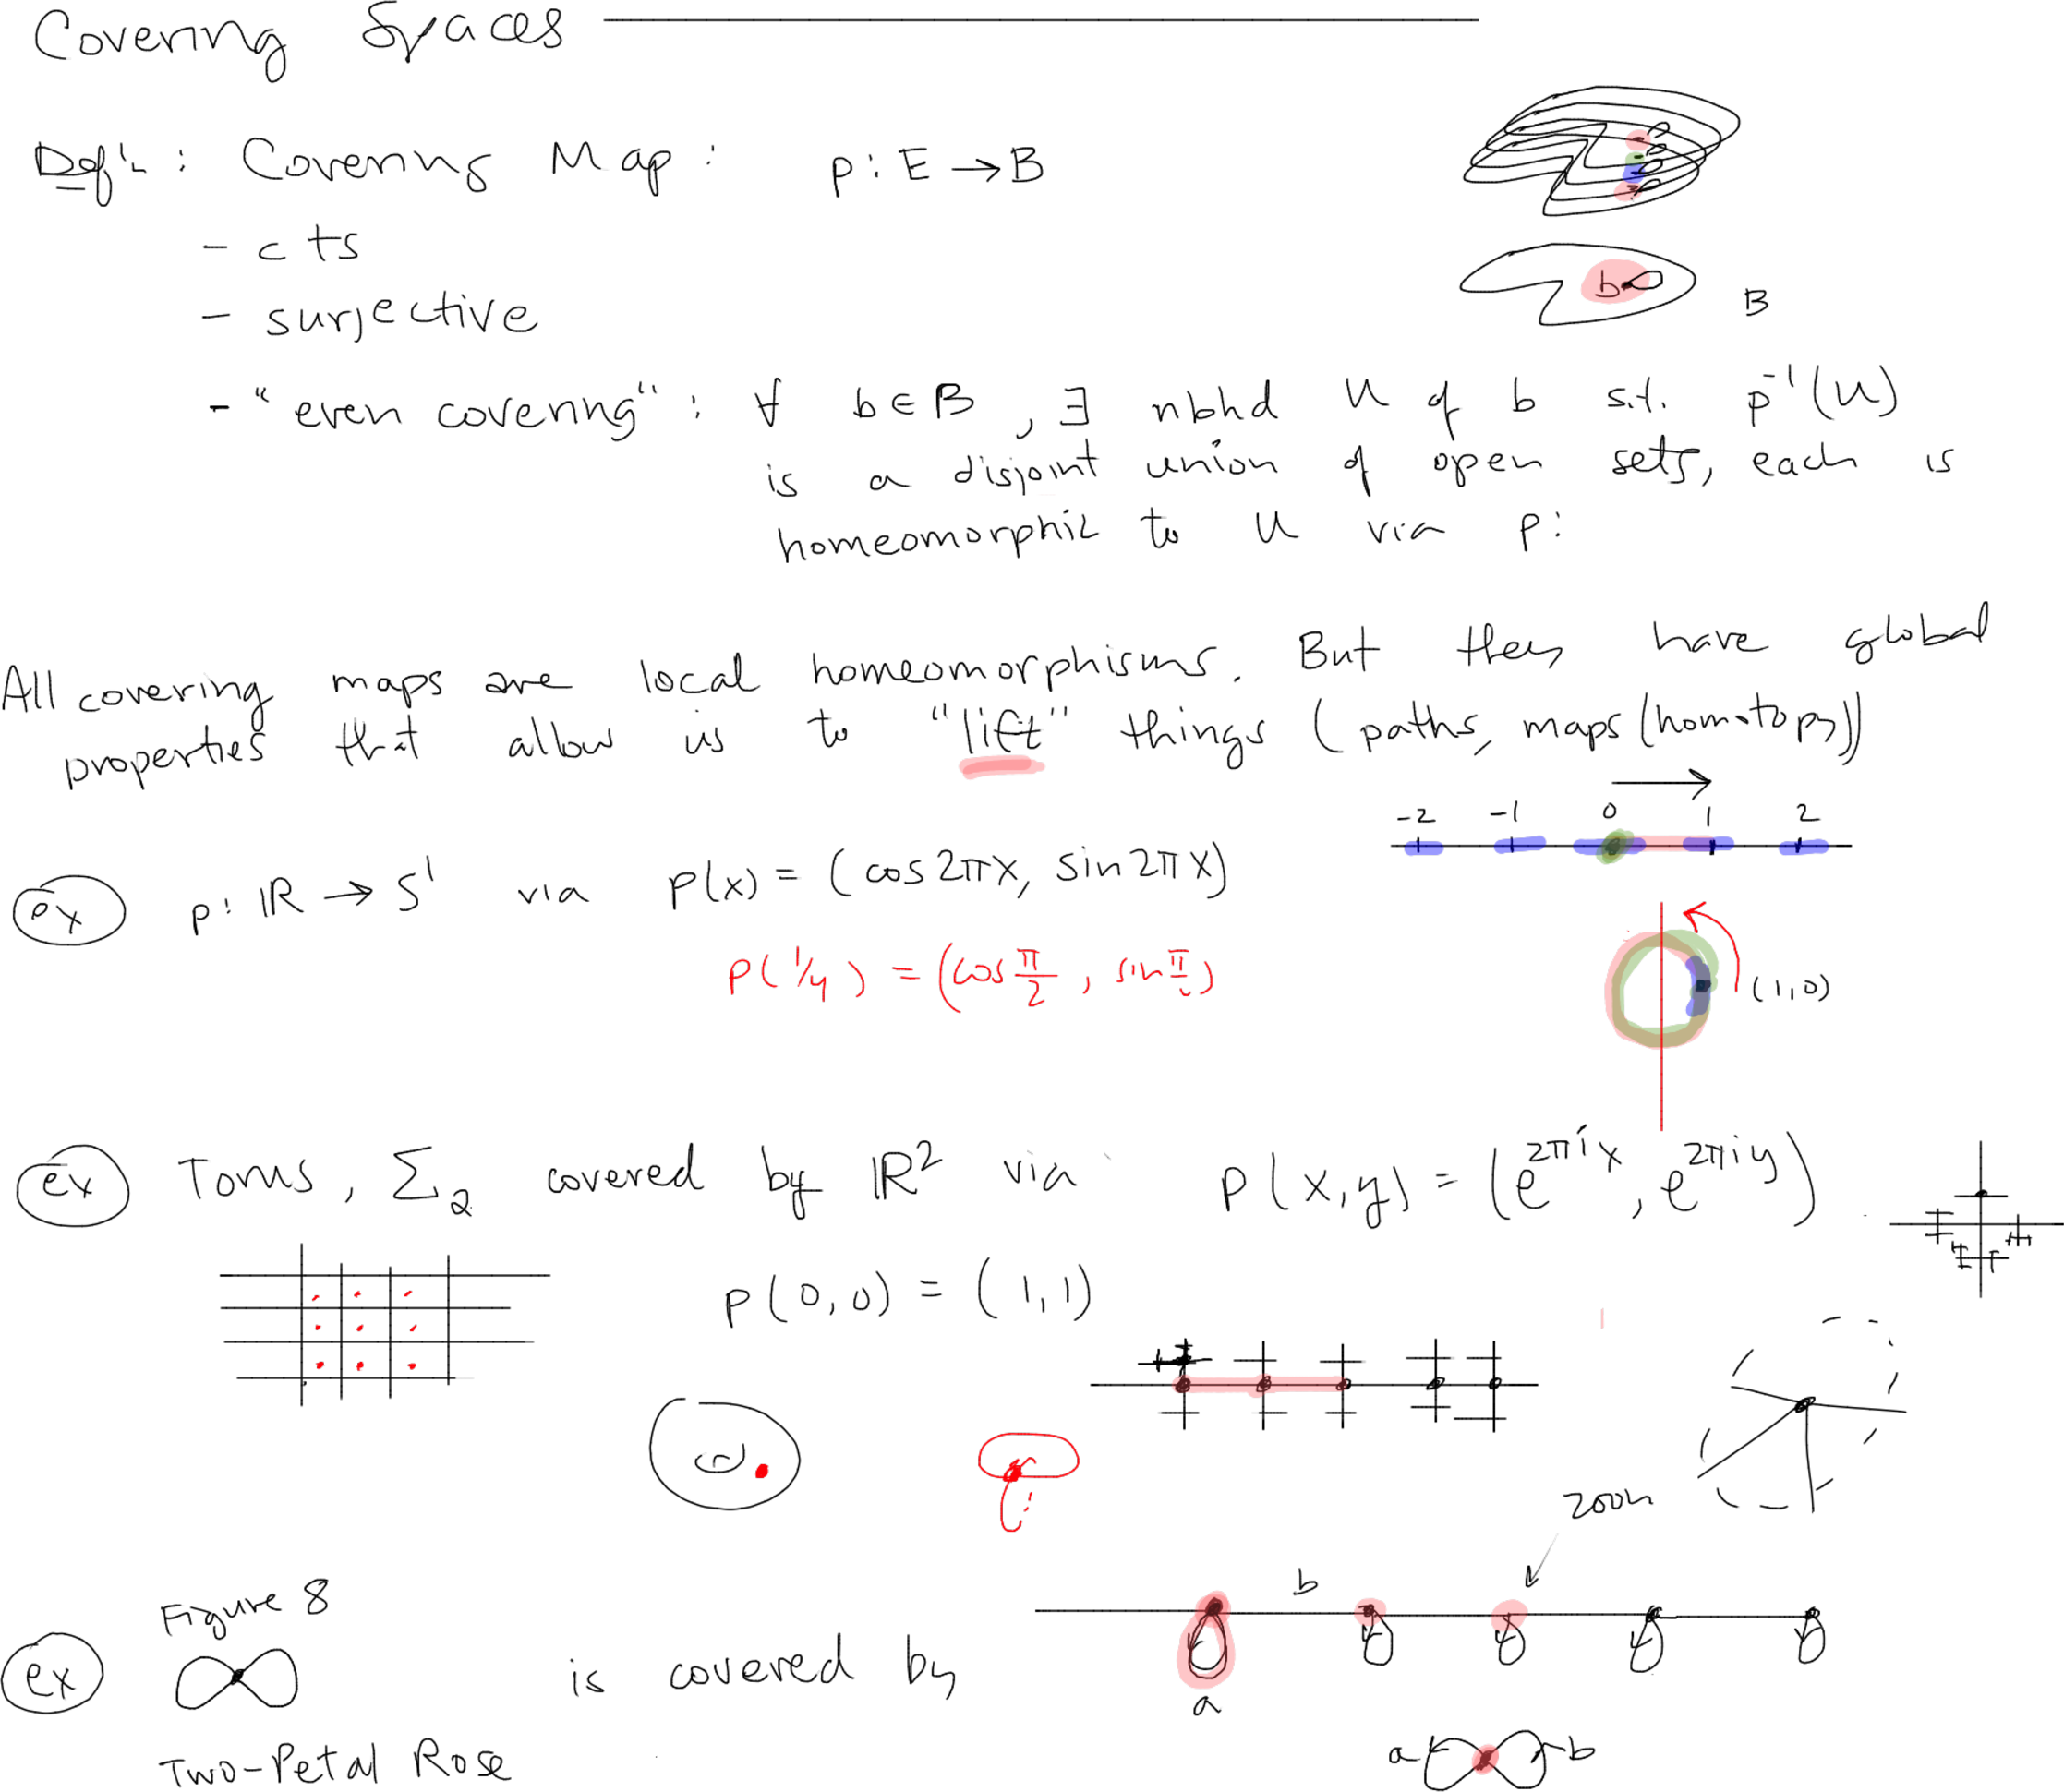 Covering Spaces
Def'n : Covering Map : p : E → B
- cts
- surjective
b
B
- "even covering" : ∀ b ∈ B , ∃ nbhd U of b s.t. p⁻¹(U)
is a disjoint union of open sets, each is
homeomorphic to U via p :
All covering maps are local homeomorphisms. But they have global
properties that allow us to "lift" things (paths, maps (homotopy))
-2 -1 0 1 2
ex p : ℝ → S¹ via p(x) = (cos 2πx, sin 2πx)
p(1/4) = (cos π/2 , sin π/2)
(1,0)
ex Torus, Σ₂ covered by ℝ² via p(x,y) = (e^{2πix}, e^{2πiy})
p(0,0) = (1,1)
zoom
b
Figure 8
ex is covered by
a
a b
Two-Petal Rose